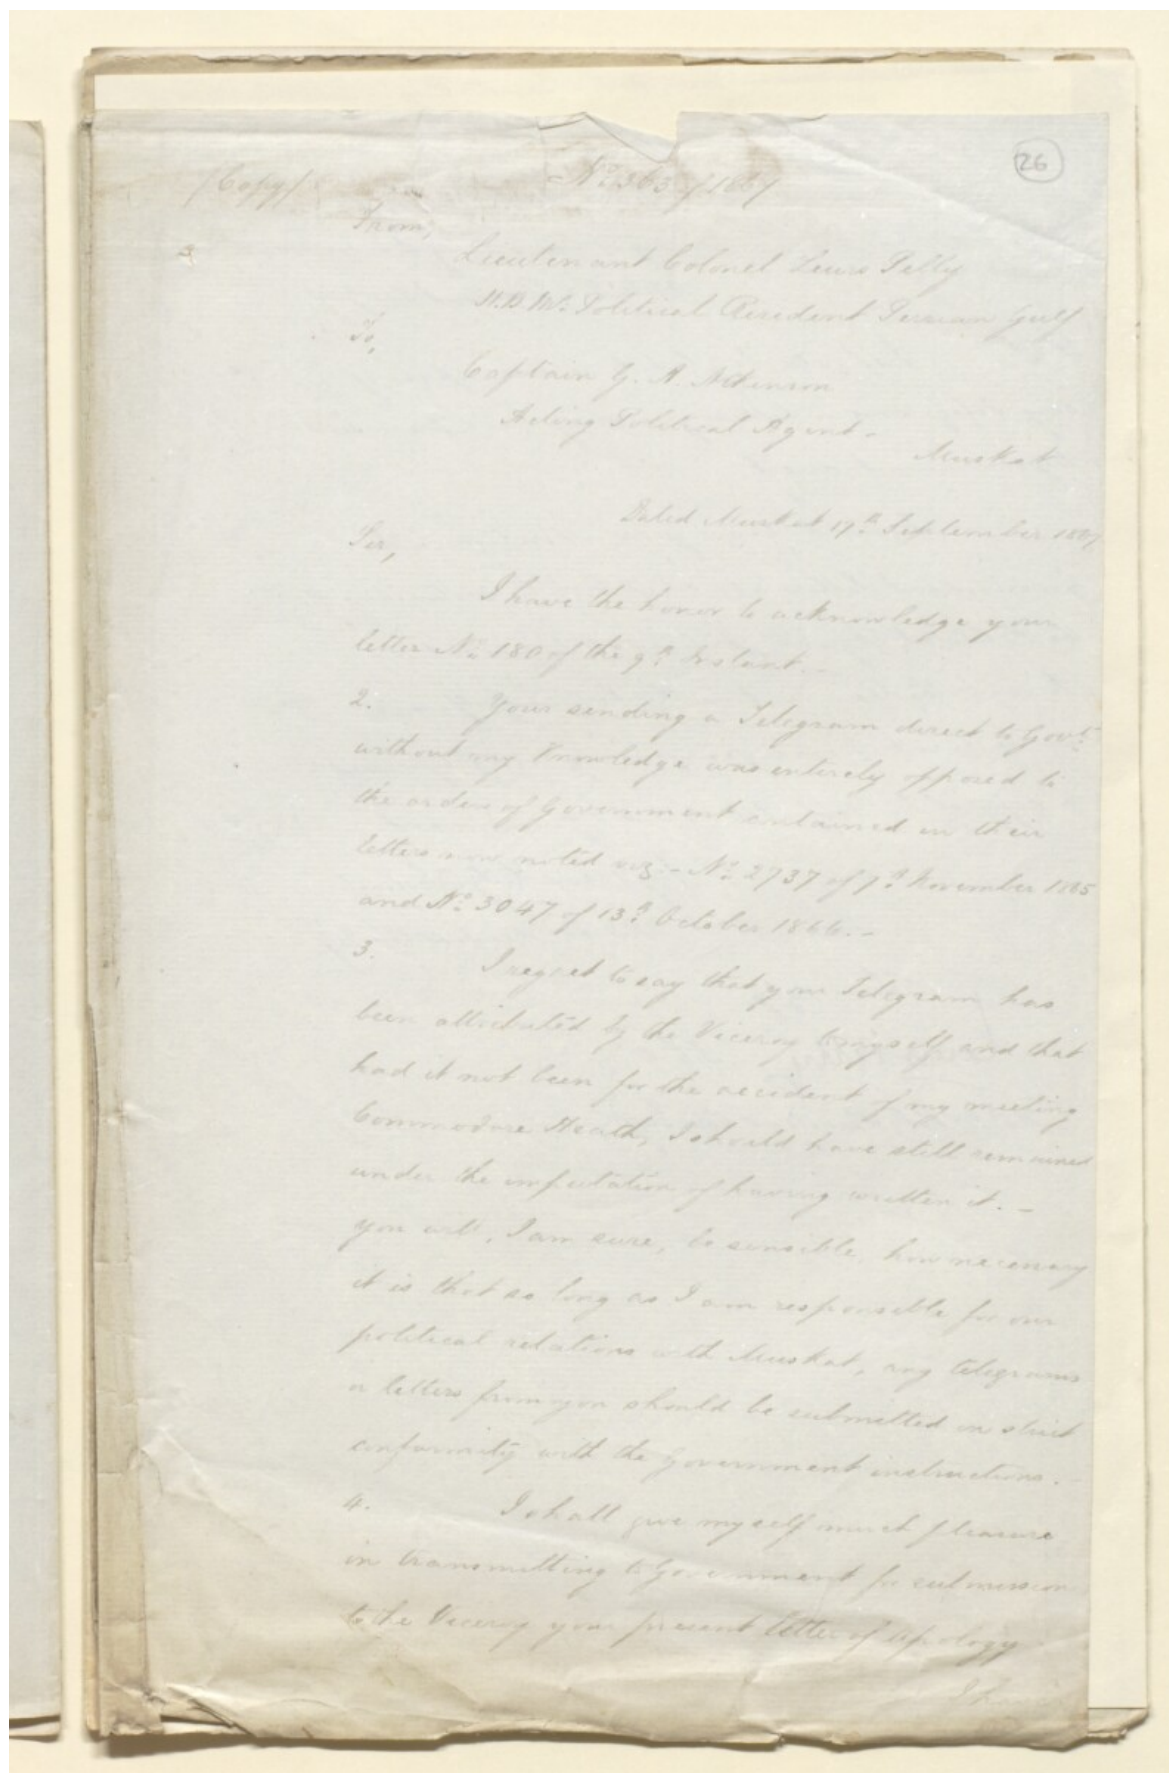 26
(Copy)
No. 363 of 1867
From,
Lieutenant Colonel Lewis Pelly
H.B.M's Political Resident Persian Gulf
To,
Captain G. A. Atkinson
Acting Political Agent -
Muskat
Dated Muskat 19th September 1867
Sir,
I have the honor to acknowledge your
letter No. 180 of the 9th Instant. -
2. Your sending a Telegram direct to Govt.
without my knowledge was entirely opposed to
the orders of Government contained in their
letters now noted viz: - No. 2737 of 7th November 1865
and No. 3047 of 13th October 1866. -
3. I regret to say that your Telegram has
been attributed by the Viceroy to myself and that
had it not been for the accident of my meeting
Commodore Heath, I should have still remained
under the imputation of having written it. -
you will, I am sure, be sensible, how necessary
it is that so long as I am responsible for our
political relations with Muskat, any telegrams
or letters from you should be submitted in strict
conformity with the Government instructions. -
4. I shall give myself much pleasure
in transmitting to Government for submission
to the Viceroy your present letter of apology
I have